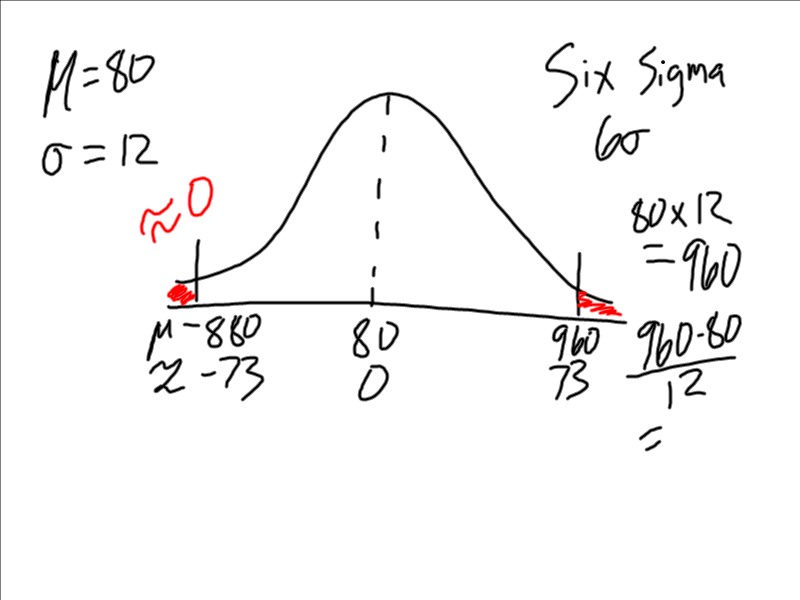 μ=80
σ=12
Six Sigma
6σ
≈0
80×12
=960
μ -880 80 960
z -73 0 73
960-80
12
=